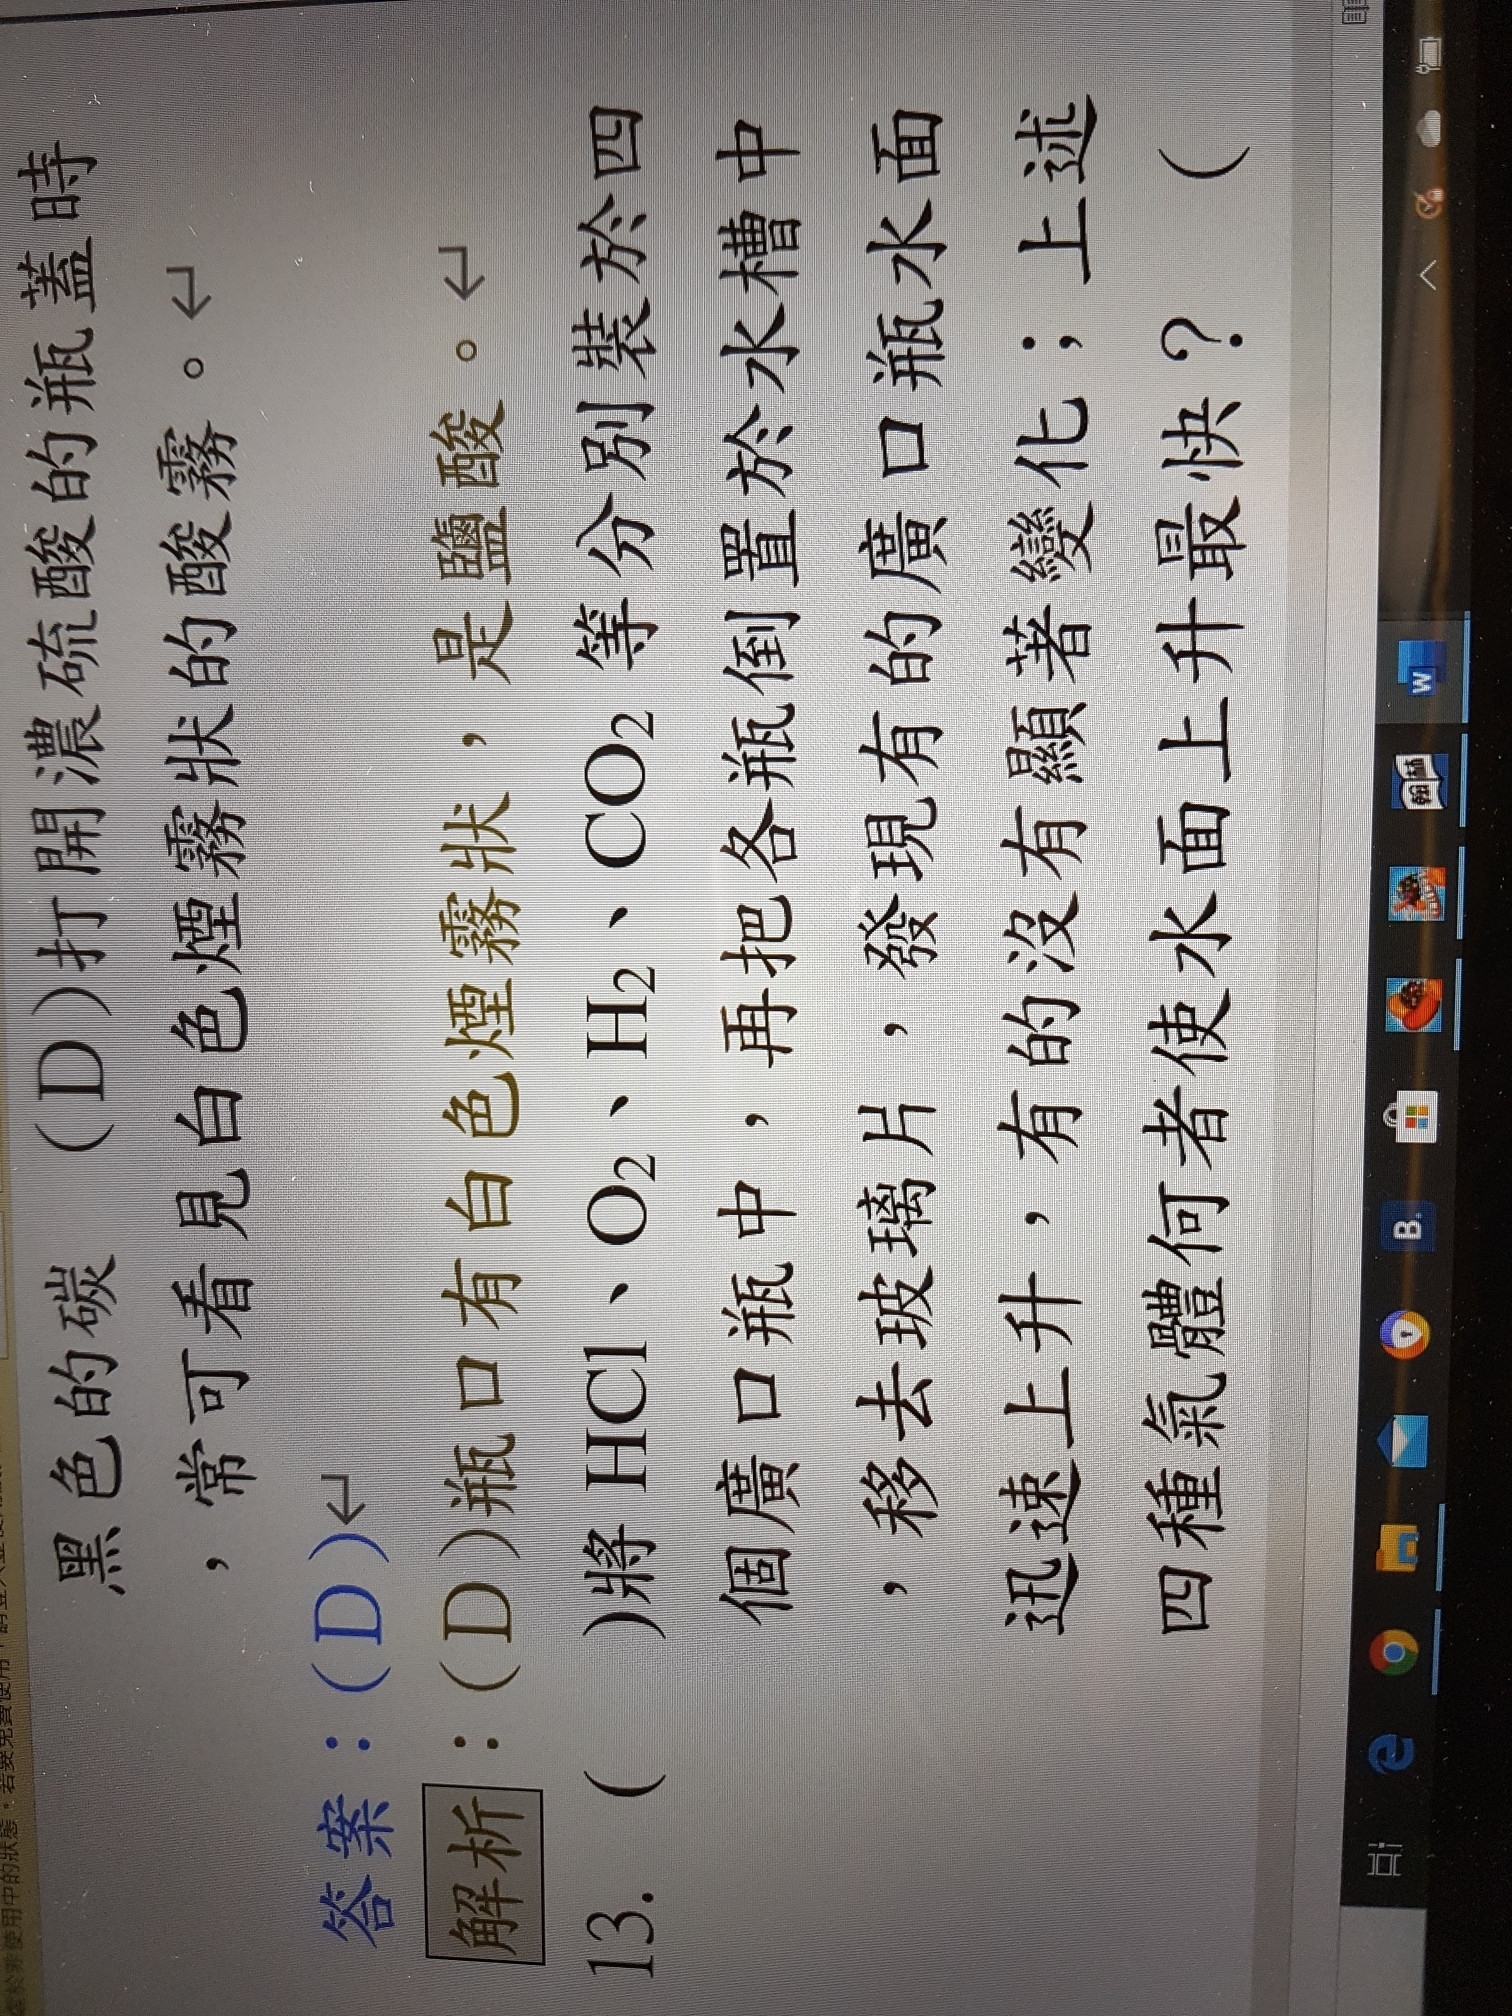 黑色的碳 (D)打開濃硫酸的瓶蓋時
，常可看見白色煙霧狀的酸霧。
答案：(D)
解析：(D)瓶口有白色煙霧狀，是鹽酸。
13. ( )將 HCl、O₂、H₂、CO₂ 等分別裝於四
個廣口瓶中，再把各瓶倒置於水槽中
，移去玻璃片，發現有的廣口瓶水面
迅速上升，有的沒有顯著變化；上述
四種氣體何者使水面上升最快？ (